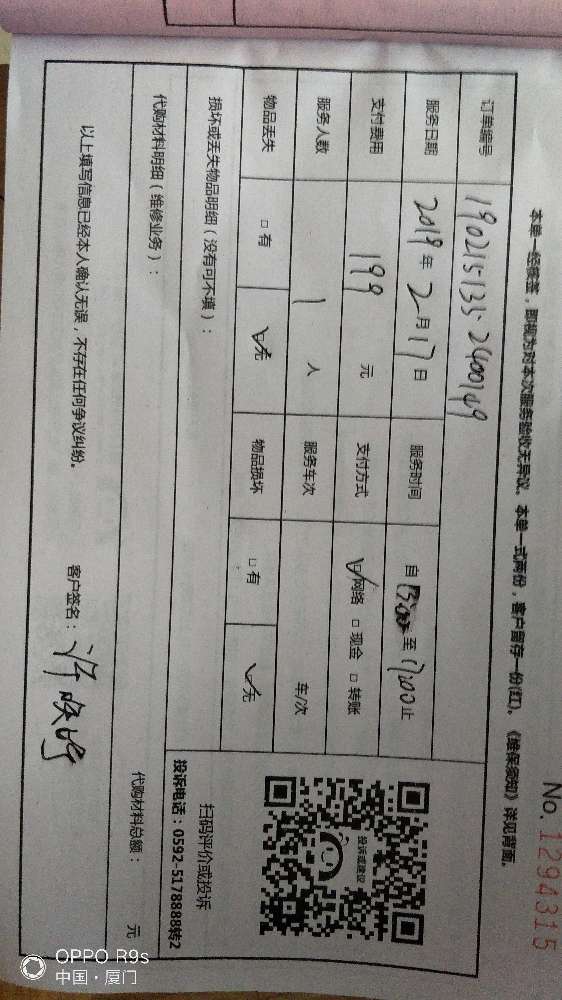 No. 1294315
本单一经签签，即视为对本次服务验收无异议。本单一式两份，客户留存一份(红)。《维保须知》详见背面。
订单编号 190215135-2400149
服务日期 2019年2月17日 服务时间 自 至17:00止
支付费用 199 元 支付方式 ☑网络 □现金 □转账
服务人数 1 人 服务车次 车/次
物品丢失 □有 ☑无 物品损坏 □有 ☑无
损坏或丢失物品明细（没有可不填）：
投诉或建议
扫码评价或投诉
投诉电话：0592-5178888转2
代购材料明细（维修业务）：
代购材料总额： 元
以上填写信息已经本人确认无误，不存在任何争议纠纷。 客户签名：许
OPPO R9s
中国·厦门